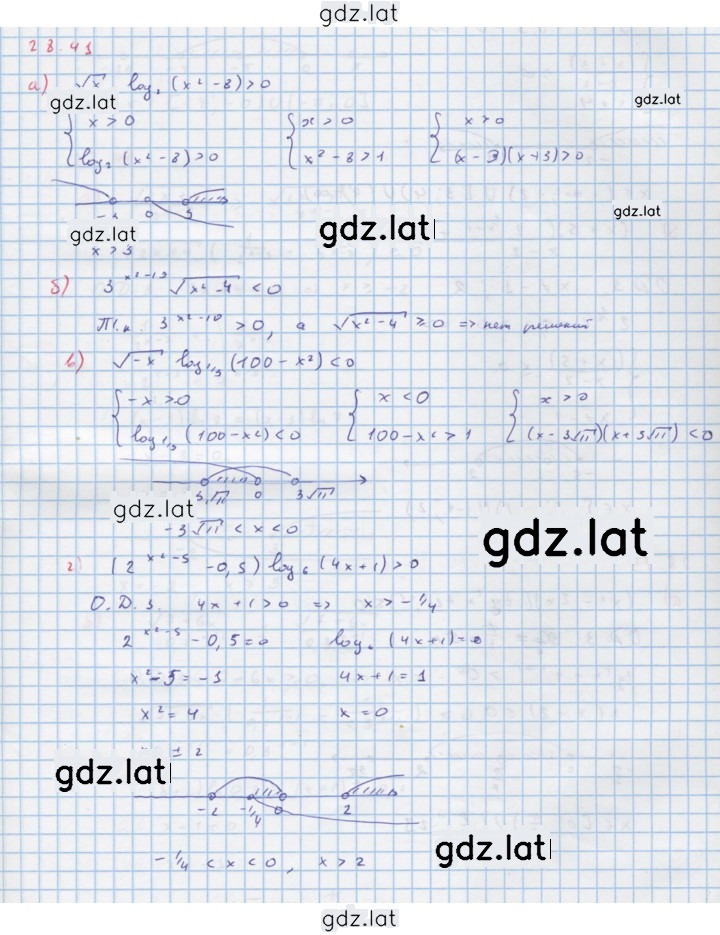 gdz.lat
28.41
а) √x log₂ (x² - 8) > 0
gdz.lat gdz.lat
{ x > 0 { x > 0 { x > 0
log₂ (x² - 8) > 0 x² - 8 > 1 (x - 3)(x + 3) > 0
0 3
gdz.lat gdz.lat gdz.lat
x > 3
б) √(x² - 4) < 0
Т.к. 3^(x² - 10) > 0, а √(x² - 4) ≥ 0 => нет решений
в) √(-x) log₁/₃ (100 - x²) < 0
{ -x > 0 { x < 0 { x > 0
log₁/₃ (100 - x²) < 0 100 - x² > 1 (x - 3√11)(x + 3√11) < 0
3√11 0 3√11
gdz.lat
- 3√11 < x < 0
gdz.lat
г) (2^(x² - 5) - 0,5) log₆ (4x + 1) > 0
О.Д.З. 4x + 1 > 0 => x > -1/4
2^(x² - 5) - 0,5 = 0 log₆ (4x + 1) = 0
x² - 5 = -1 4x + 1 = 1
x² = 4 x = 0
± 2
gdz.lat
-2 -1/4 0 2
gdz.lat
-1/4 < x < 0, x > 2
gdz.lat